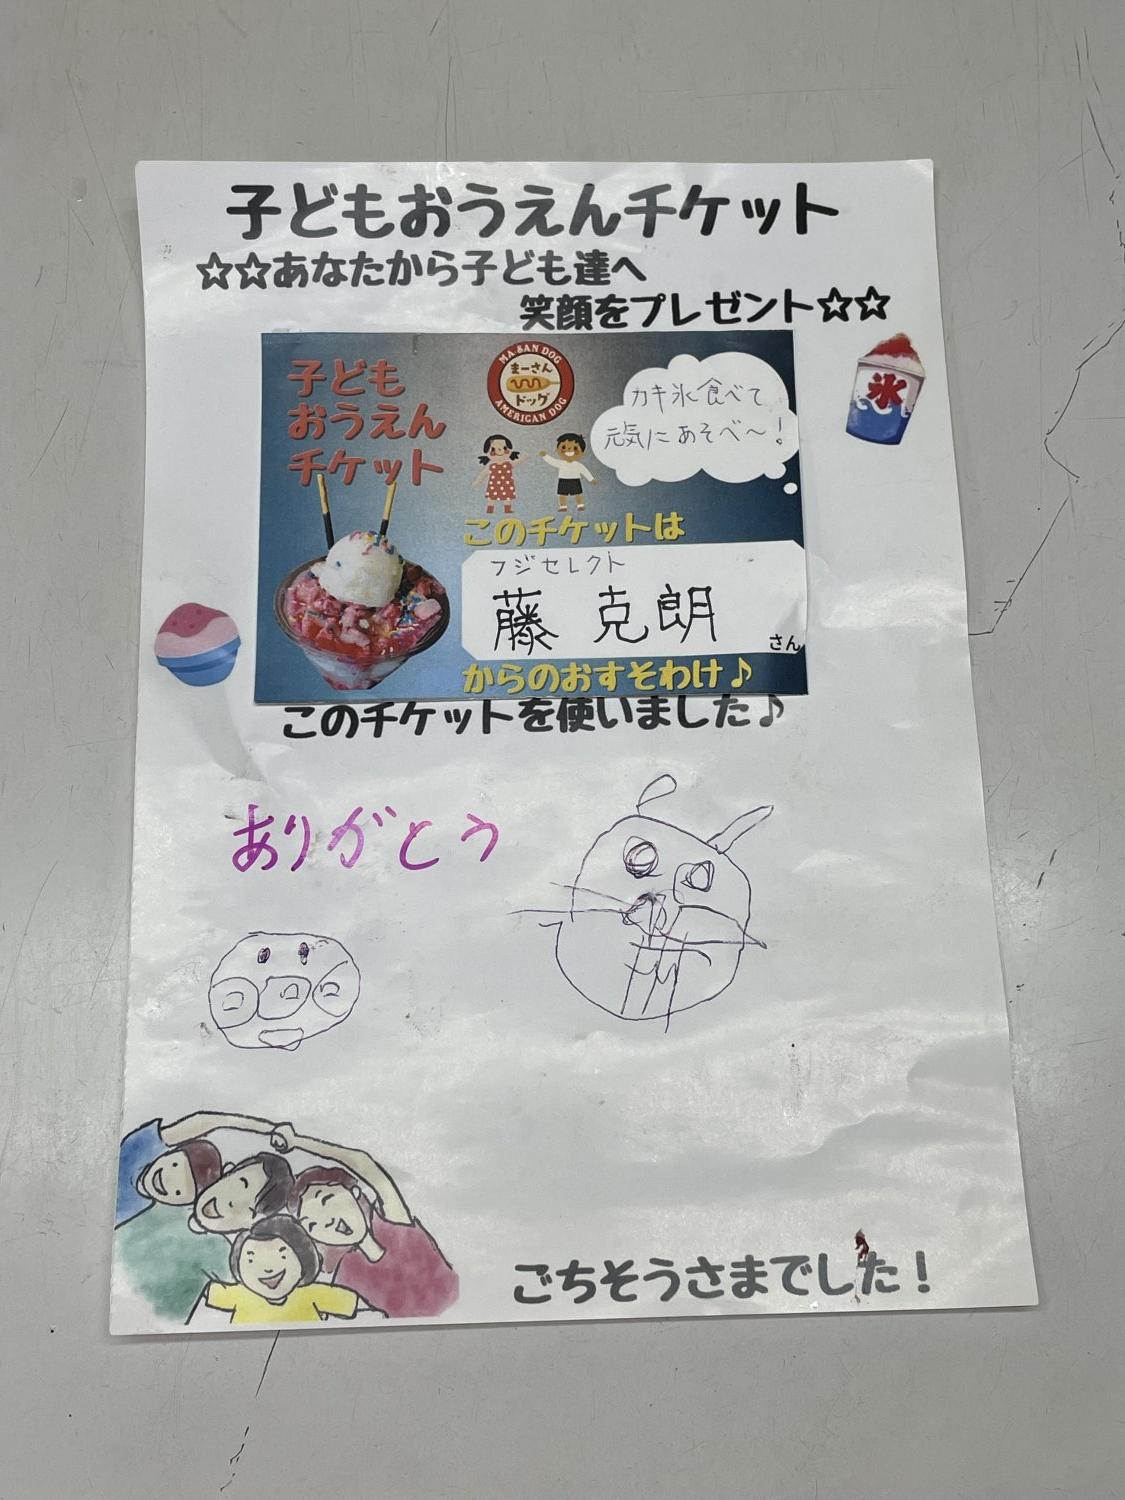 子どもおうえんチケット
☆☆あなたから子ども達へ
笑顔をプレゼント☆☆
氷
子ども
おうえん
チケット
MA-SAN DOG
まーさん
ドッグ
AMERICAN DOG
カキ氷食べて
元気にあそべ〜!
このチケットは
フジセレクト
藤 克朗
さん
からのおすそわけ♪
このチケットを使いました♪
ありがとう
ごちそうさまでした!